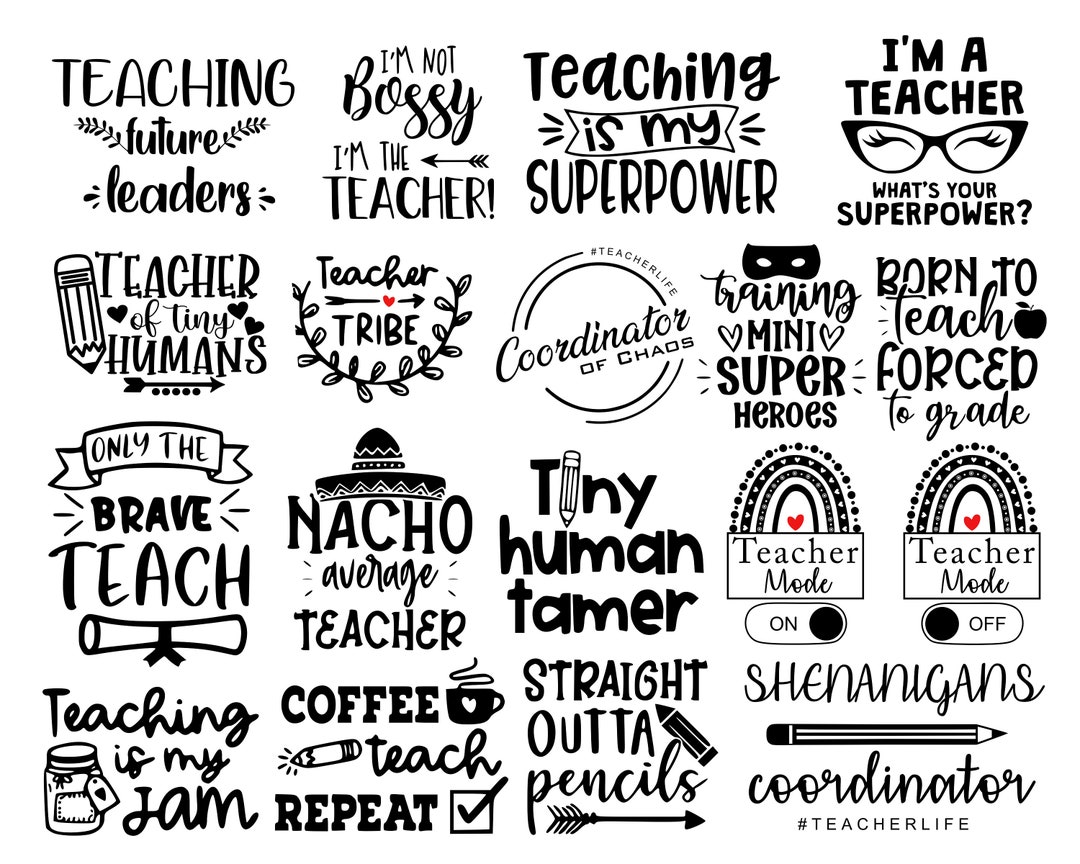 TEACHING
future
leaders
I'M NOT
Bossy
I'M THE
TEACHER!
Teaching
is my
SUPERPOWER
I'M A
TEACHER
WHAT'S YOUR
SUPERPOWER?
TEACHER
of tiny
HUMANS
Teacher
TRIBE
#TEACHERLIFE
Coordinator
OF CHAOS
training
MINI
SUPER
HEROES
BORN TO
teach
FORCED
to grade
ONLY THE
BRAVE
TEACH
NACHO
average
TEACHER
Tiny
human
tamer
Teacher
Mode
ON
Teacher
Mode
OFF
Teaching
is my
Jam
COFFEE
teach
REPEAT
STRAIGHT
OUTTA
pencils
SHENANIGANS
coordinator
#TEACHERLIFE